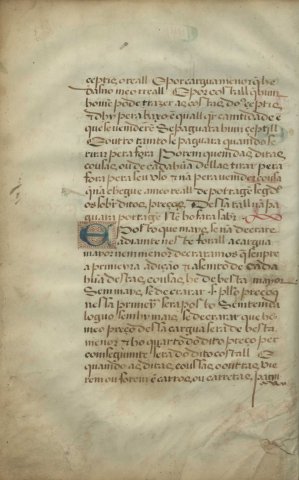 ceptis, o reall E por cargua menor q̃ he
balno meo reall E por costall q̃ hum
home pode trazer as costas, dous ceptis
E dhy pera baxo e quallq̃r camtidade
que se vender se paguara hum ceptill
E outro tamto se paguara quamdo se
tirar pera fora Porem quem das, ditas,
cousas, ou de cada hũa dellas, tirar pera
fora pera seu uso E nã pera vemder cousa
q̃ nã chegue a meo reall de portagẽ segũdo
os sobr ditos, preços, Desta tall nã pa
guara portagẽ nẽ ho fara saber
E Posto que mays, se nã decrare
adiante neste forall a cargua
mayor nem menor decraramos q̃ sempre
a primeira adiçã E asemto de cada
hũa destas, cousas, he de besta mayor
Sem mays, se decrarar s. pello preço q̃
nesta primeira sera posto Se emtemda
loguo sem hy mays, se decrarar que ho
meo preço desta cargua sera de besta
menor E ho quarto do dito preço per
comseguimte sera do dito costall E
quamdo as, ditas, cousas, ou outras, vie
rem ou forem ẽ carros, ou carretas,